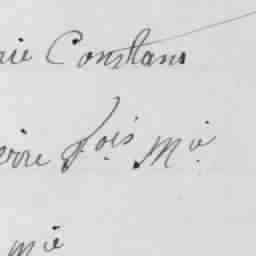 rie Constans
erre fois Mie
mie